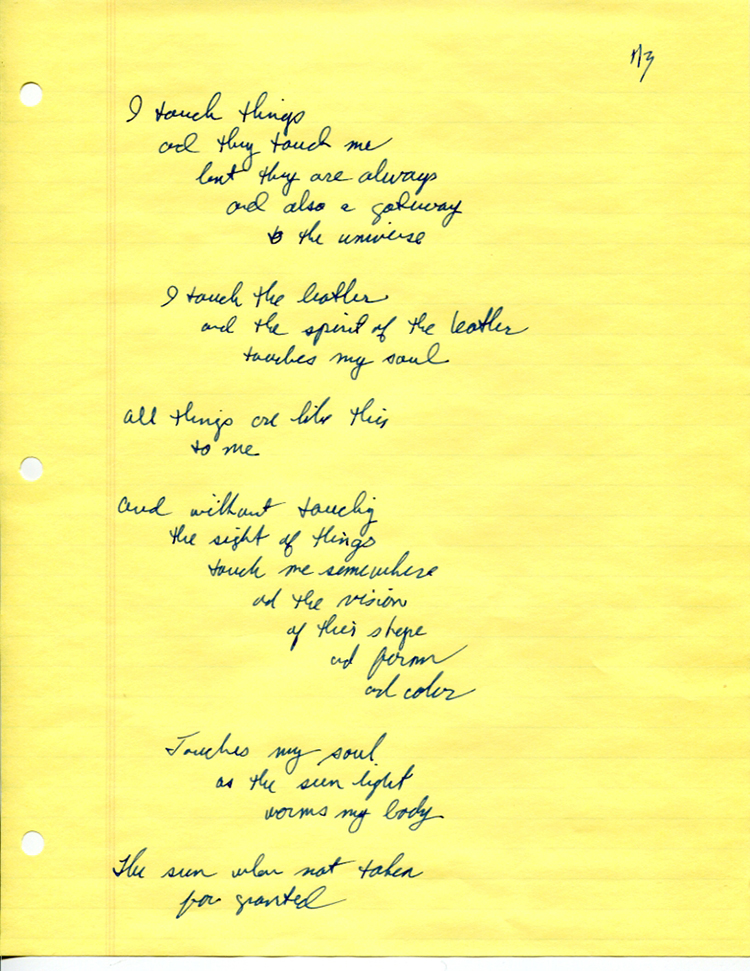 1/3
I touch things
and they touch me
but they are always
and also a gateway
to the universe
I touch the leather
and the spirit of the leather
touches my soul
all things are like this
to me
and without touching
the sight of things
touch me somewhere
and the vision
of their shape
and form
and color
Touches my soul
as the sun light
warms my body
The sun when not taken
for granted